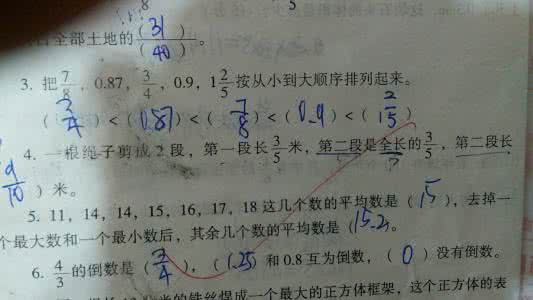 全部土地的(31)/(40)。
3. 把7/8，0.87，3/4，0.9，1 2/5按从小到大顺序排列起来。
(3/4)<(0.87)<(7/8)<(0.9)<(1 2/5)
4. 一根绳子剪成2段，第一段长3/5米，第二段是全长的3/5，第二段长
9/10)米。
5. 11，14，14，15，16，17，18这几个数的平均数是(15)，去掉一
个最大数和一个最小数后，其余几个数的平均数是(15.2)。
6. 4/3的倒数是(3/4)，(1.25)和0.8互为倒数，(0)没有倒数。
米的铁丝焊成一个最大的正方体框架，这个正方体的表